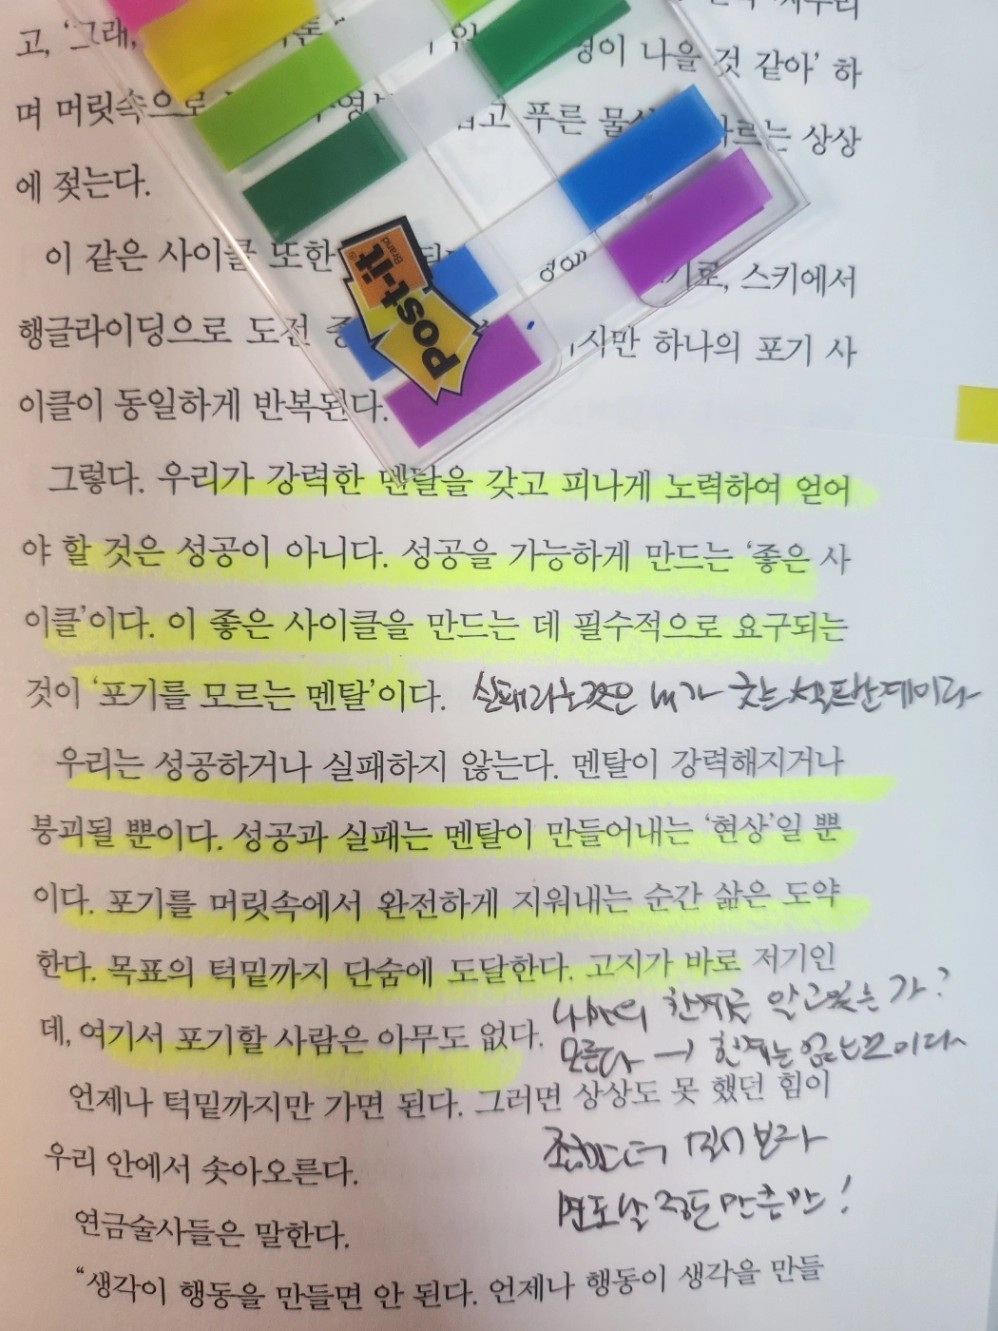 고, ‘그래,
이 나을 것 같아’ 하
며 머릿속으로 푸른 상상
에 젖는다.
이 같은 사이클 또한 스키에서
행글라이딩으로 도전 하나의 포기 사
이클이 동일하게 반복된다.
Post-it
Brand
그렇다. 우리가 강력한 멘탈을 갖고 피나게 노력하여 얻어
야 할 것은 성공이 아니다. 성공을 가능하게 만드는 ‘좋은 사
이클’이다. 이 좋은 사이클을 만드는 데 필수적으로 요구되는
것이 ‘포기를 모르는 멘탈’이다. 실패라는것은 내가 긋는
우리는 성공하거나 실패하지 않는다. 멘탈이 강력해지거나
붕괴될 뿐이다. 성공과 실패는 멘탈이 만들어내는 ‘현상’일 뿐
이다. 포기를 머릿속에서 완전하게 지워내는 순간 삶은 도약
한다. 목표의 턱밑까지 단숨에 도달한다. 고지가 바로 저기인
데, 여기서 포기할 사람은 아무도 없다.
나의 한계를 알고있는가?
모른다 → 한계는 없는것이다
언제나 턱밑까지만 가면 된다. 그러면 상상도 못 했던 힘이
우리 안에서 솟아오른다.
연금술사들은 말한다.
“생각이 행동을 만들면 안 된다. 언제나 행동이 생각을 만들